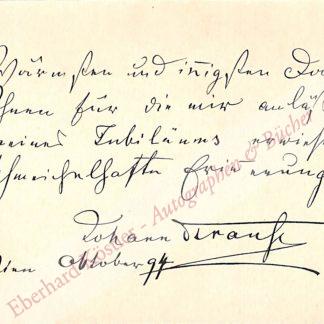 Wärmsten und innigsten Da
hnen für die mir anläß
eines Jubiläums erwies
chmeichelhafte Erinnerung
Johann Strauss
ien Oktober 94
Eberhard Köstler - Autographen & Bücher